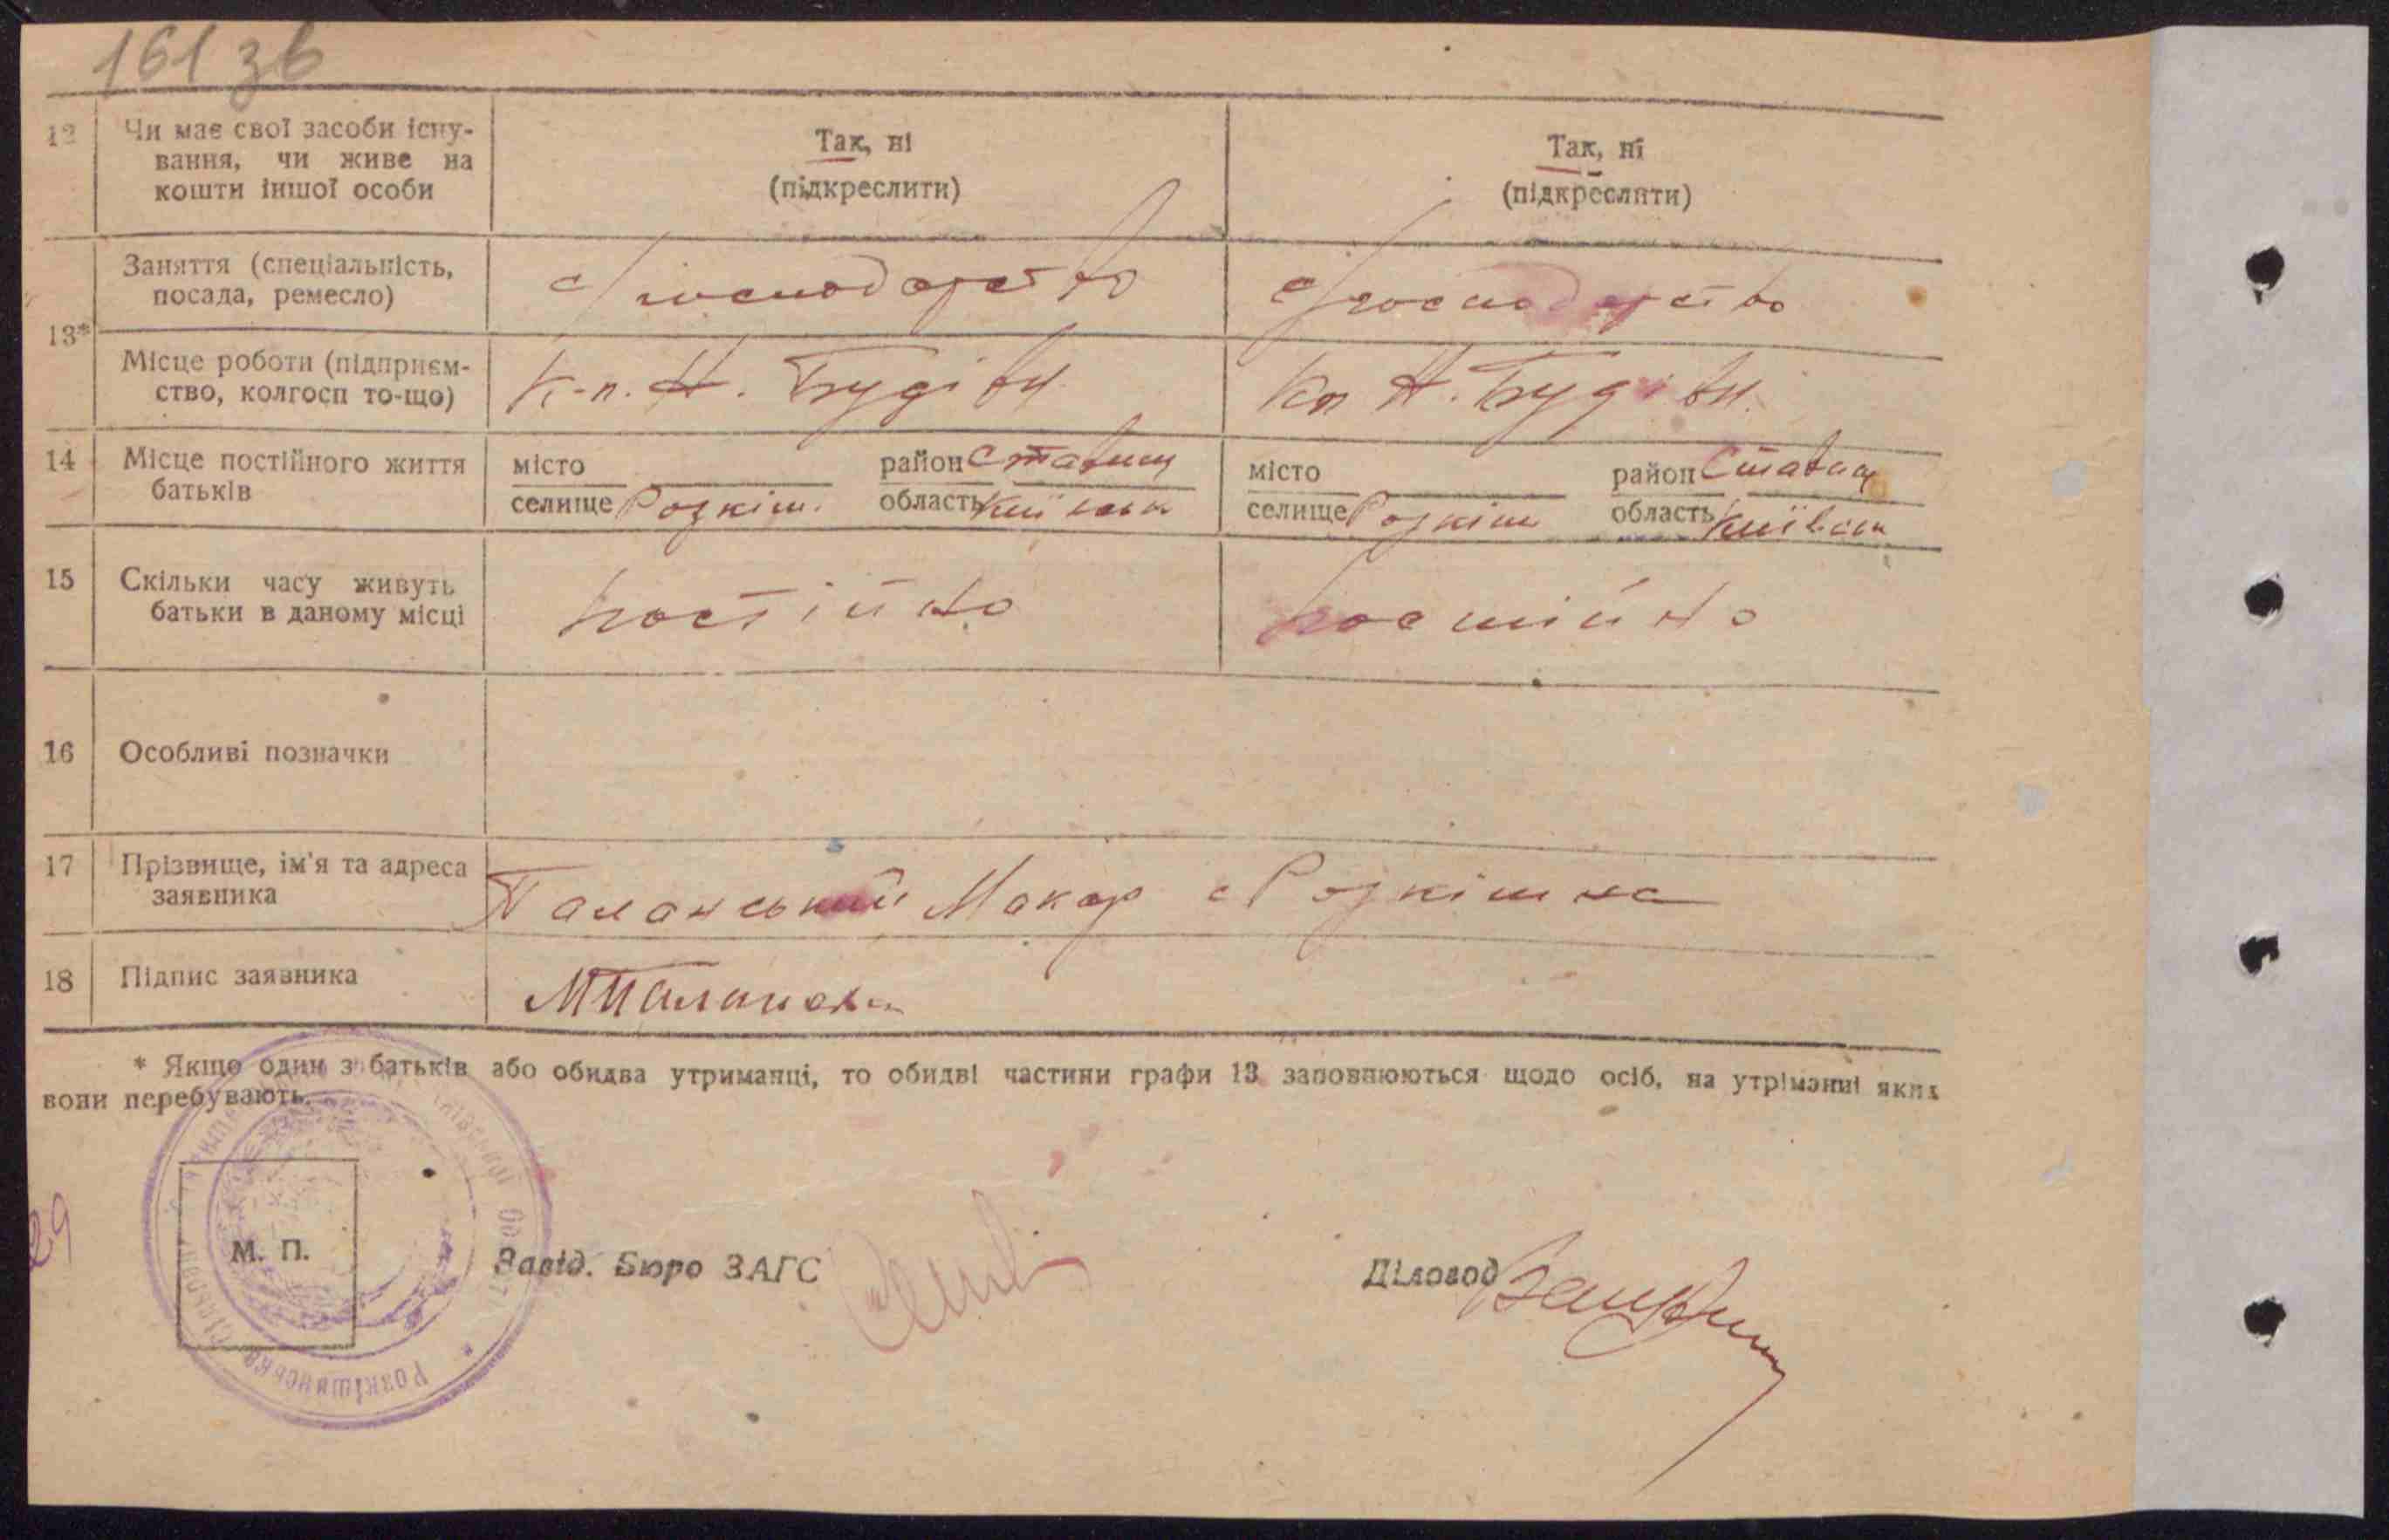 161 зв
12 Чи має свої засоби існу- Так, ні Так, ні
вання, чи живе на (підкреслити) (підкреслити)
кошти іншої особи
13* Заняття (спеціальність, с/господарство с/господарство
посада, ремесло)
Місце роботи (підприєм- К-п. Н. Будівн. Кп Н. Будівн.
ство, колгосп то-що)
14 Місце постійного життя місто район Ставищ місто район Ставищ
батьків селище Розкіш. область Київськ селище Розкіш область Київськ
15 Скільки часу живуть постійно постійно
батьки в даному місці
16 Особливі позначки
17 Прізвище, ім'я та адреса Паланський Макар с Розкішна
заявника
18 Підпис заявника МПаланськ
* Якщо один з батьків або обидва утриманці, то обидві частини графи 13 заповнюються щодо осіб, на утріманні яких
вони перебувають.
29
М. П. Завід. Бюро ЗАГС Діловод
Розкішнська сільська